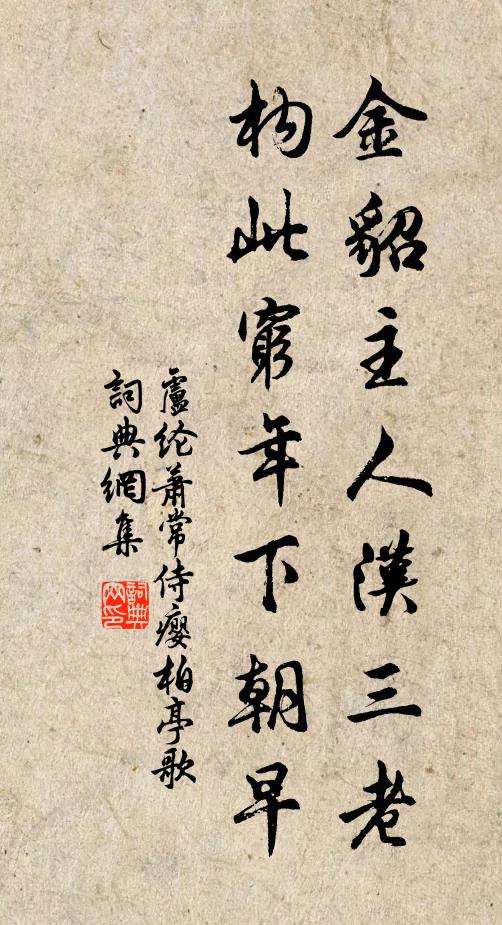 金貂主人漢三老
构此窮年下朝早
盧纶蕭常侍瘿柏亭歌
詞典網集
詞典网印